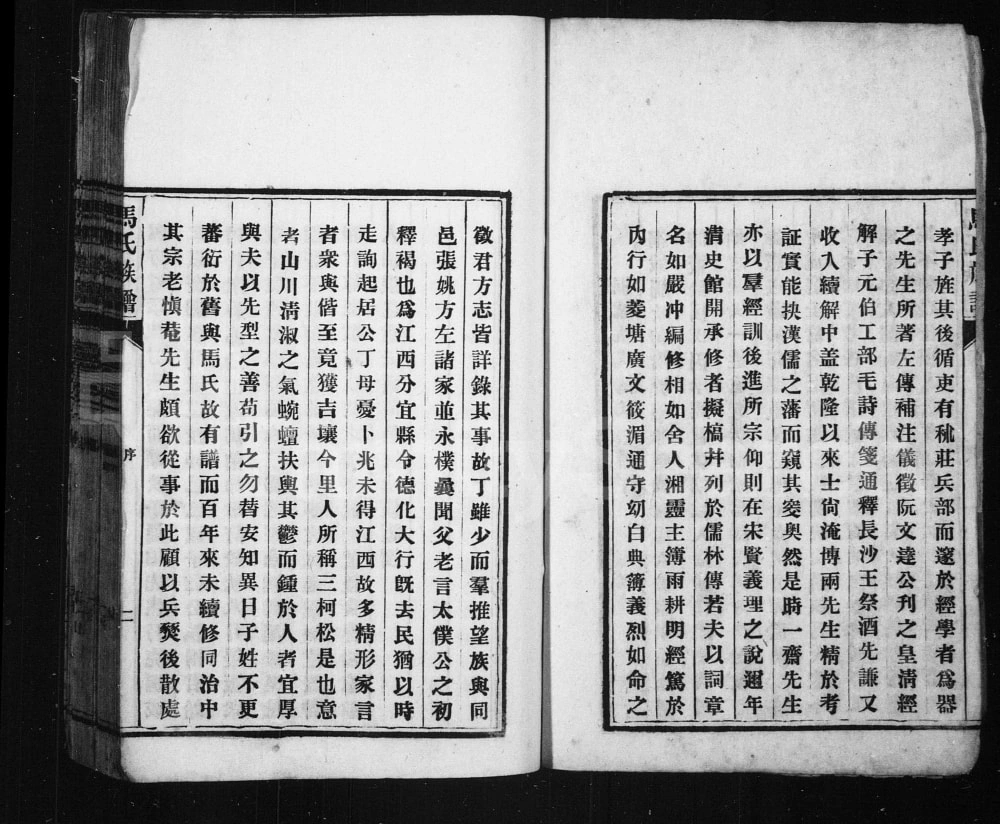 孝子旌其後循吏有秫莊兵部而邃於經學者爲器
之先生所著左傳補注儀徵阮文達公刊之皇清經
解子元伯工部毛詩傳箋通釋長沙王祭酒先謙又
收入續解中盖乾隆以來士尙淹博兩先生精於考
証實能抉漢儒之藩而窺其窔奥然是時一齋先生
亦以羣經訓後進所宗仰則在宋賢義理之說邇年
清史館開承修者擬槁幷列於儒林傳若夫以詞章
名如嚴冲編修相如舍人湘靈主簿雨耕明經篤於
內行如菱塘廣文筱湄通守幼白典簿義烈如命之
徵君方志皆詳錄其事故丁雖少而羣推望族與同
邑張姚方左諸家並永樸曩聞父老言太僕公之初
釋褐也爲江西分宜縣令德化大行旣去民猶以時
走詢起居公丁母憂卜兆未得江西故多精形家言
者衆與偕至竟獲吉壤今里人所稱三柯松是也意
者山川清淑之氣蜿蟺扶輿其鬱而鍾於人者宜厚
與夫以先型之善苟引之勿替安知異日子姓不更
蕃衍於舊與馬氏故有譜而百年來未續修同治中
其宗老愼菴先生頗欲從事於此顧以兵燹後散處
馬氏族譜
序
二